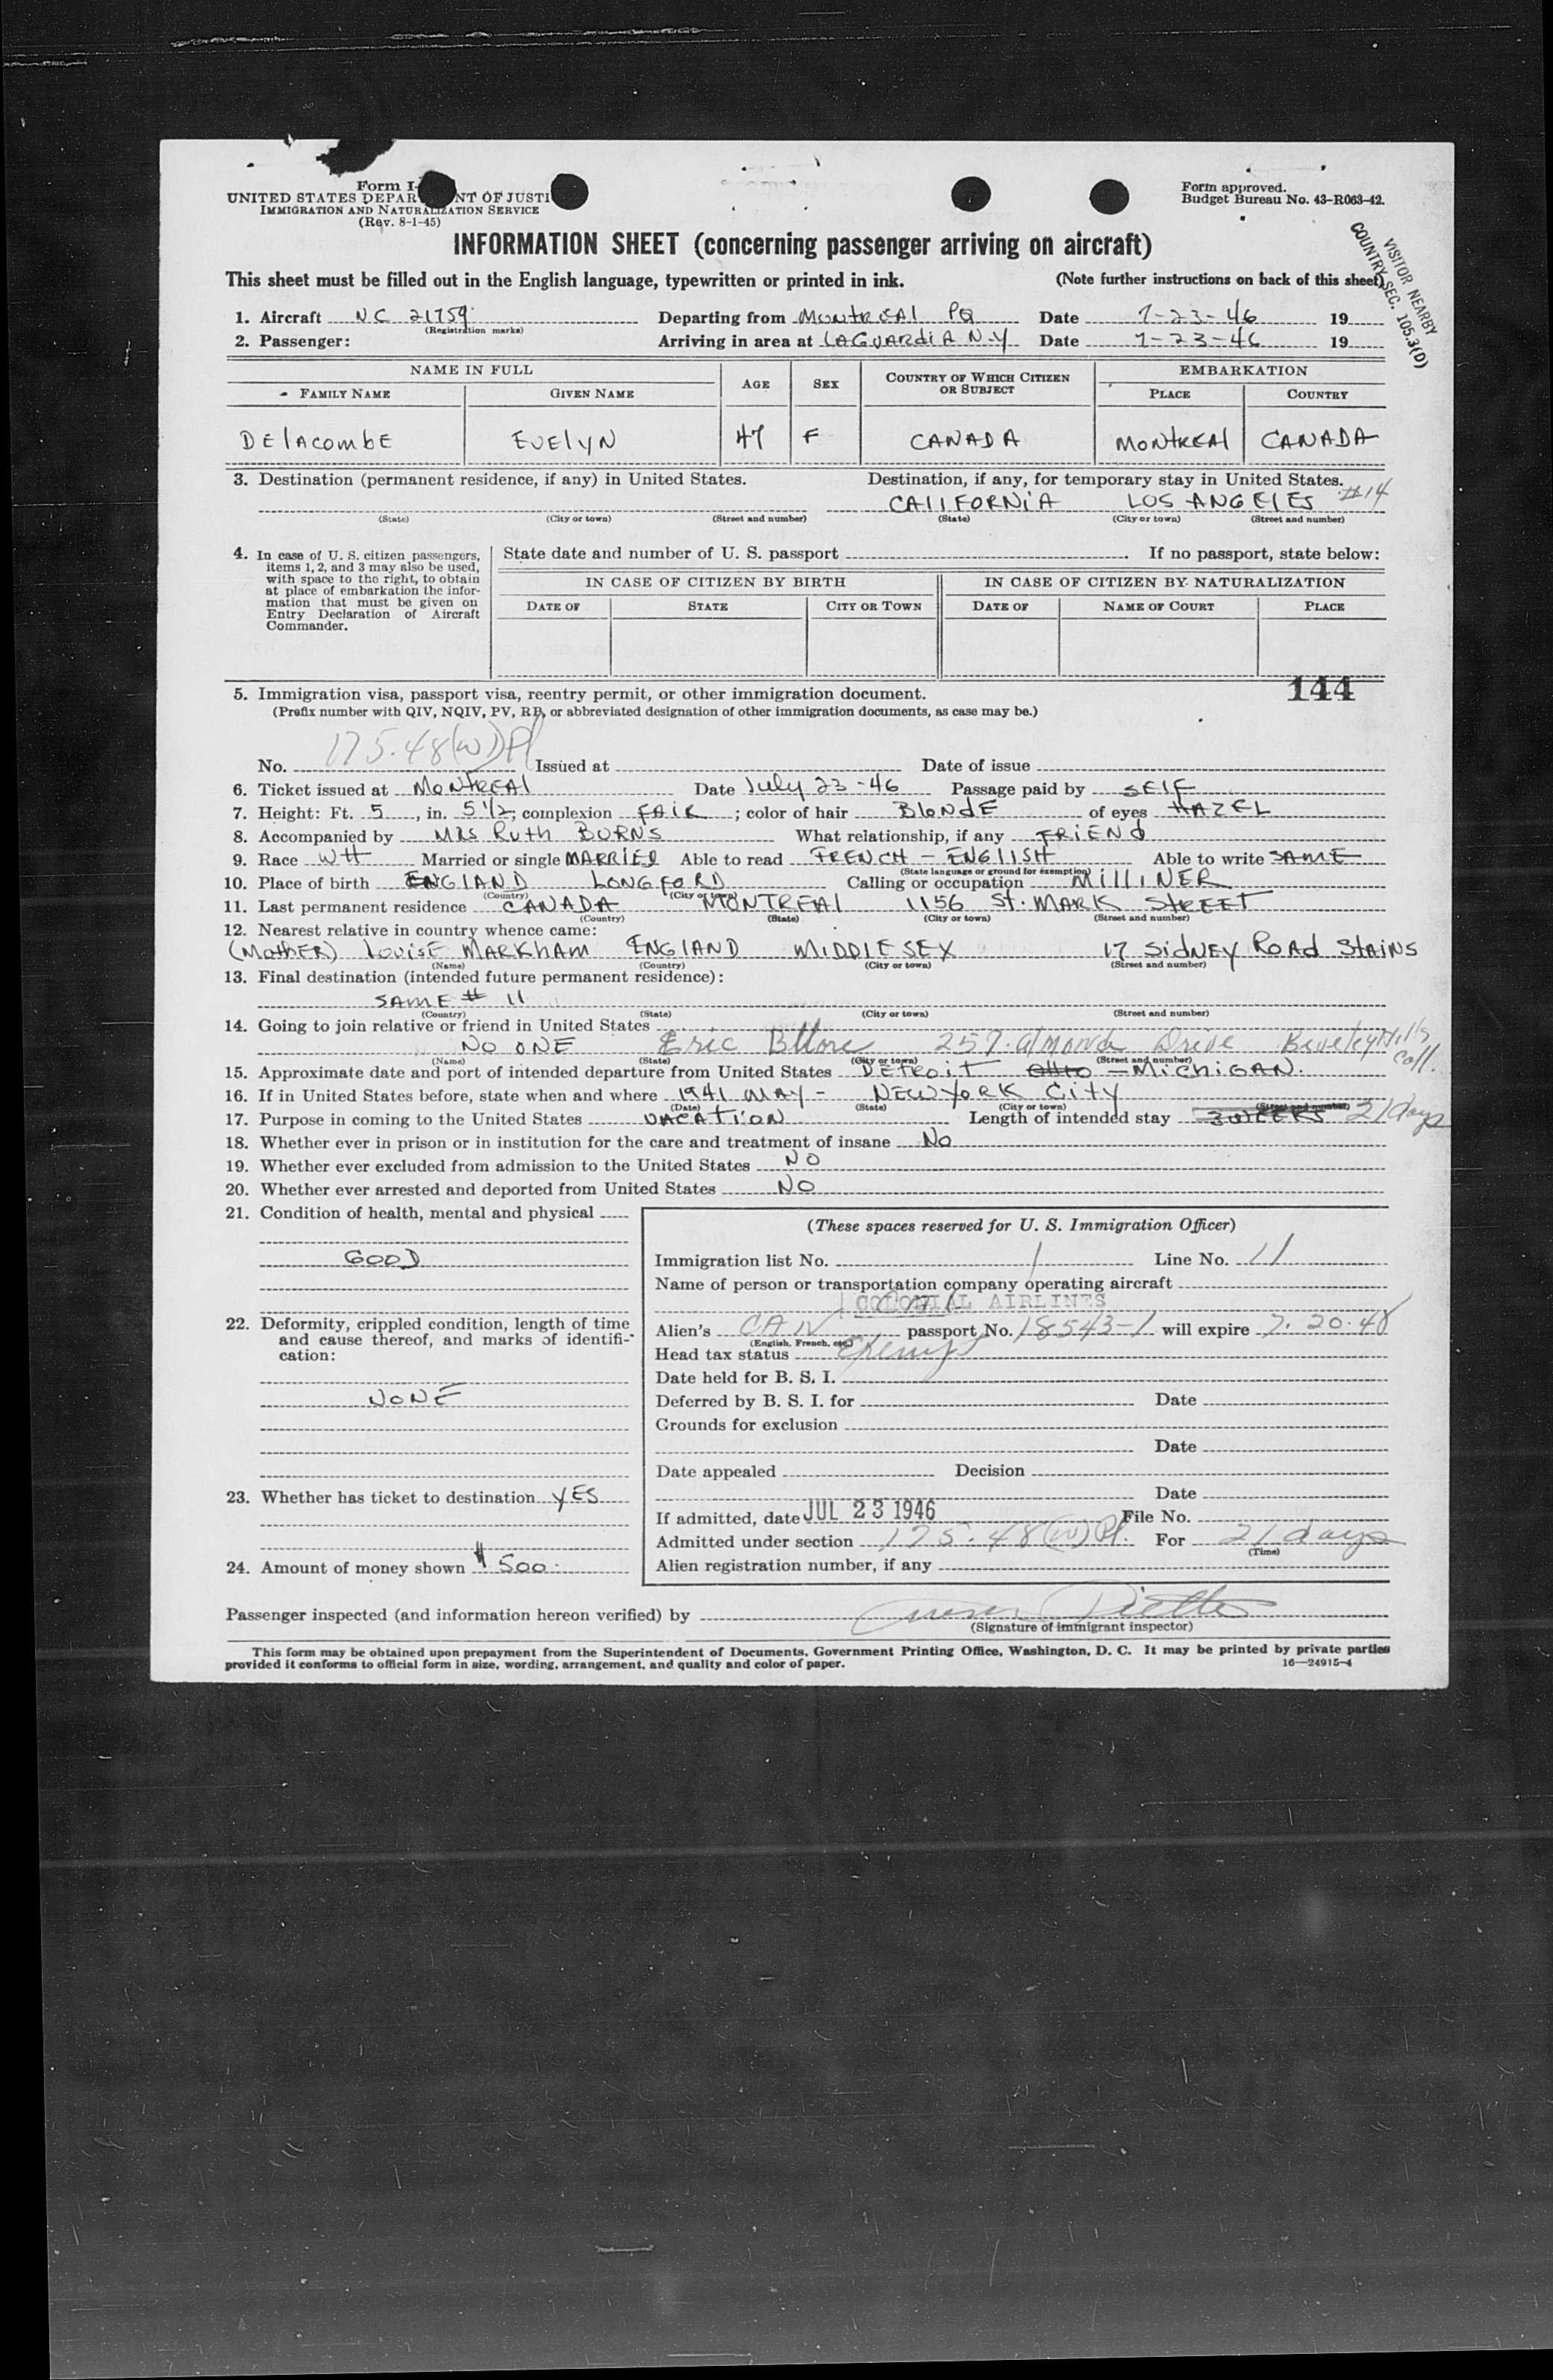 Form I-
UNITED STATES DEPAR NT OF JUSTI
IMMIGRATION AND NATURALIZATION SERVICE
(Rev. 8-1-45)
Form approved.
Budget Bureau No. 43-R063-42.
VISITOR NEARBY
COUNTRY SEC. 105.3(D)
INFORMATION SHEET (concerning passenger arriving on aircraft)
This sheet must be filled out in the English language, typewritten or printed in ink. (Note further instructions on back of this sheet)
1. Aircraft NC 21759 Departing from MONTREAL PQ Date 7-23-46 19
(Registration marks)
2. Passenger: Arriving in area at LAGUARDIA N.Y Date 7-23-46 19
NAME IN FULL AGE SEX COUNTRY OF WHICH CITIZEN OR SUBJECT EMBARKATION
FAMILY NAME GIVEN NAME PLACE COUNTRY
DELACOMBE EVELYN 47 F CANADA MONTREAL CANADA
3. Destination (permanent residence, if any) in United States. Destination, if any, for temporary stay in United States.
CALIFORNIA LOS ANGELES #14
(State) (City or town) (Street and number) (State) (City or town) (Street and number)
4. In case of U. S. citizen passengers, items 1, 2, and 3 may also be used, with space to the right, to obtain at place of embarkation the information that must be given on Entry Declaration of Aircraft Commander.
State date and number of U. S. passport . If no passport, state below:
IN CASE OF CITIZEN BY BIRTH IN CASE OF CITIZEN BY NATURALIZATION
DATE OF STATE CITY OR TOWN DATE OF NAME OF COURT PLACE
144
5. Immigration visa, passport visa, reentry permit, or other immigration document.
(Prefix number with QIV, NQIV, PV, RP, or abbreviated designation of other immigration documents, as case may be.)
No. 175.48(W)Pl Issued at Date of issue
6. Ticket issued at MONTREAL Date July 23-46 Passage paid by SELF
7. Height: Ft. 5, in. 5 1/2; complexion FAIR; color of hair BLONDE of eyes HAZEL
8. Accompanied by MRS RUTH BURNS What relationship, if any FRIEND
9. Race WH Married or single MARRIED Able to read FRENCH - ENGLISH Able to write SAME
(State language or ground for exemption)
10. Place of birth ENGLAND LONGFORD Calling or occupation MILLINER
(Country) (City or town)
11. Last permanent residence CANADA MONTREAL 1156 St. MARK STREET
(Country) (State) (City or town) (Street and number)
12. Nearest relative in country whence came:
(MOTHER) LOUISE MARKHAM ENGLAND MIDDLESEX 17 SIDNEY ROAD STAINS
(Name) (Country) (City or town) (Street and number)
13. Final destination (intended future permanent residence):
SAME # 11
(Country) (State) (City or town) (Street and number)
14. Going to join relative or friend in United States
NO ONE Eric 257 Drive
(Name) (State) (City or town) (Street and number)
15. Approximate date and port of intended departure from United States DETROIT OHIO - MICHIGAN.
16. If in United States before, state when and where 1941 MAY - NEW YORK CITY
(Date) (State) (City or town) (Street and number)
17. Purpose in coming to the United States VACATION Length of intended stay 3 WEEKS 21 days
18. Whether ever in prison or in institution for the care and treatment of insane No
19. Whether ever excluded from admission to the United States NO
20. Whether ever arrested and deported from United States NO
21. Condition of health, mental and physical
GOOD
22. Deformity, crippled condition, length of time and cause thereof, and marks of identification:
NONE
23. Whether has ticket to destination YES
24. Amount of money shown $ 500.
(These spaces reserved for U. S. Immigration Officer)
Immigration list No. 1 Line No. 11
Name of person or transportation company operating aircraft
COLONIAL AIRLINES
Alien's CAN passport No. 18543-1 will expire 7.20.48
(English, French, etc.)
Head tax status Exempt
Date held for B. S. I.
Deferred by B. S. I. for Date
Grounds for exclusion
Date
Date appealed Decision
Date
If admitted, date JUL 23 1946 File No.
Admitted under section 175.48(W)Pl. For 21 days
(Time)
Alien registration number, if any
Passenger inspected (and information hereon verified) by
(Signature of immigrant inspector)
This form may be obtained upon prepayment from the Superintendent of Documents, Government Printing Office, Washington, D. C. It may be printed by private parties
provided it conforms to official form in size, wording, arrangement, and quality and color of paper. 16—24915-4